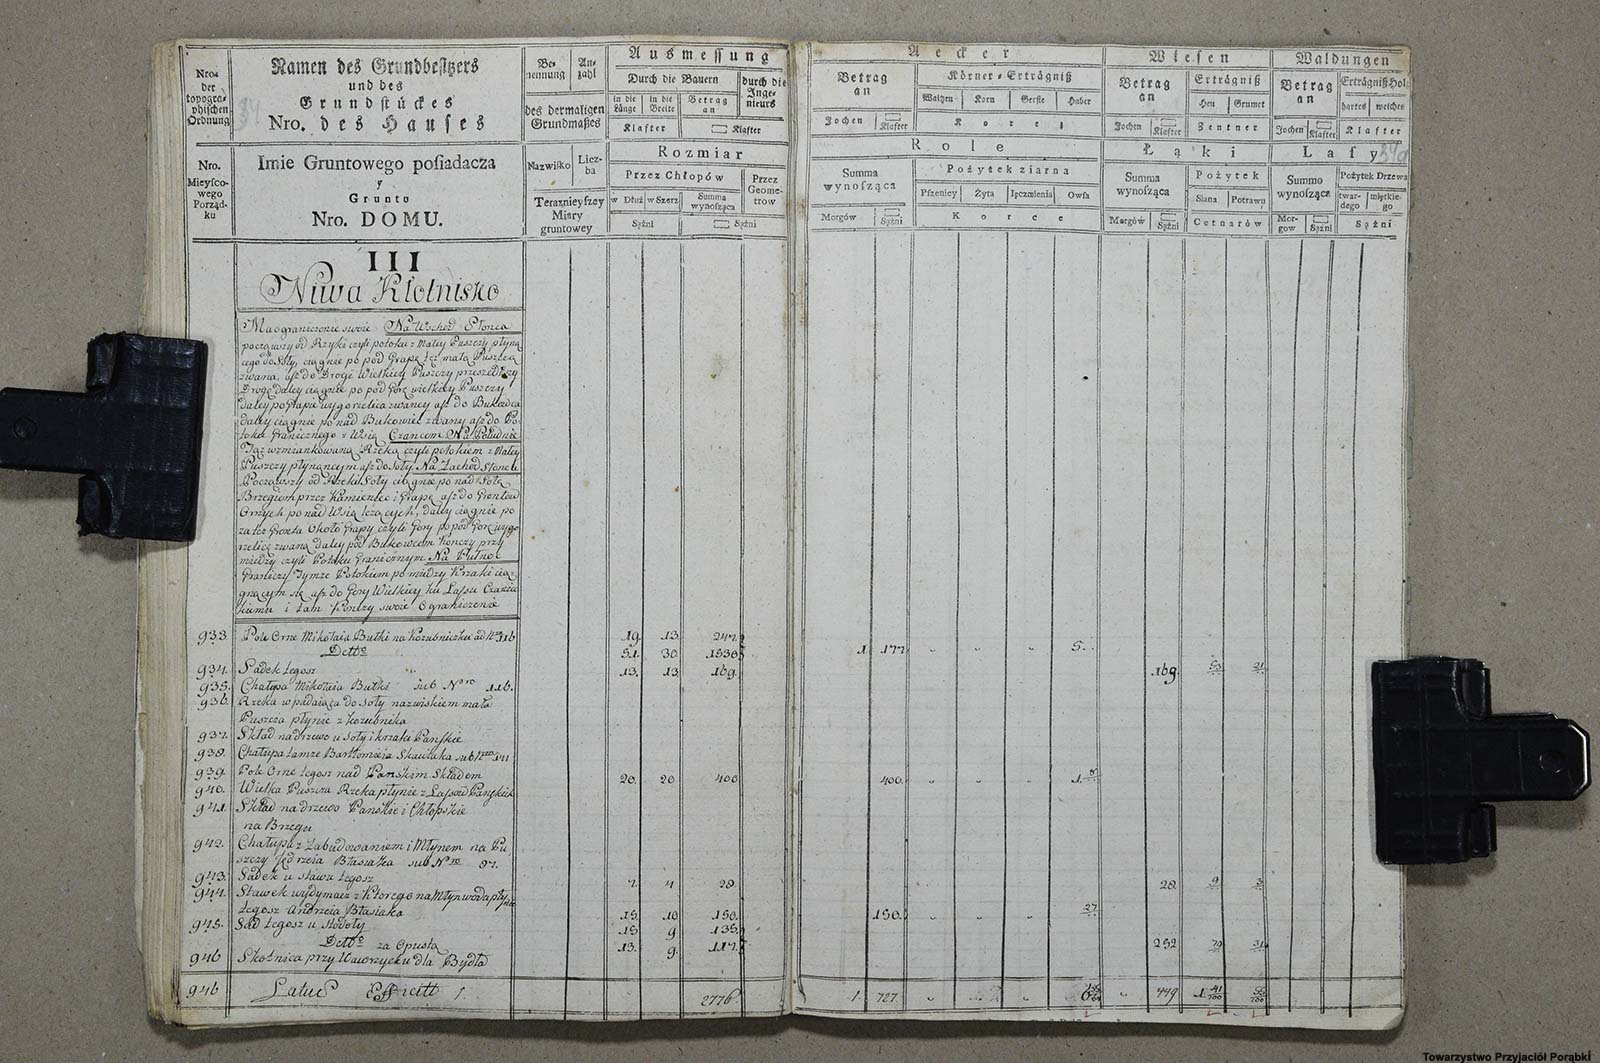 Nro. der topographischen Ordnung
Namen des Grundbesitzers
und des
Grundstückes
Nro. des Hauses
Benennung
Anzahl
des dermaligen Grundmaßes
Ausmessung
Durch die Bauern
durch die Ingenieurs
in die Länge
in die Breite
Betrag an
Klafter
Klafter
Aecker
Betrag an
Körner-Erträgniß
Waitzen
Korn
Gerste
Haber
Jochen
Klafter
Korez
Wiesen
Betrag an
Erträgniß
Heu
Grumet
Jochen
Klafter
Zentner
Waldungen
Betrag an
Erträgniß Holz
hartes
weiches
Jochen
Klafter
Klafter
Nro. Mieyscowego Porządku
Imie Gruntowego posiadacza
y
Grunto
Nro. DOMU.
Nazwisko
Liczba
Teraznieyszey Miary gruntowey
Rozmiar
Przez Chłopów
Przez Geometrow
w Dłuż
w Szerz
Summa wynosząca
Sążni
Sążni
Role
Summa wynosząca
Pożytek ziarna
Pszenicy
Żyta
Jęczmienia
Owsa
Morgów
Sążni
Korce
Łąki
Summa wynosząca
Pożytek
Siana
Potrawu
Morgów
Sążni
Cetnarów
Lasy
Summo wynosząca
Pożytek Drzewa
twardego
miętkiego
Morgow
Sążni
Sążni
III
Niwa Kłotnisko
Ma ograniczenie swoie Na Wschód Słonca
począwszy od Rzyki czyli potoku z Małey Puszczy płyną
cego do Soły, ciągnie po pod Grapę tęż mała Puszcza
zwana, aż do Drogi Wielkiey Puszczy przeszedłszy
Drogę daley ciągnie po pod Górę wielkiey Puszczy
daley po Grapie wygorzelica zwaney aż do Bukowca
daley ciągnie po nad Bukowiec zwany aż do Po-
toka Granicznego z Wsią Czancem Na Południe
Tąż wzmiankowaną Rzeką czyli potokiem z Małey
Puszczy płynącym aż do Soły Na Zachód Słonca
Począwszy od Rzeki Soły ciągnie po nad Sołę
Brzegiem przez Kamieniec i Grapę aż do Grontów
Ornych po nad Wsią leżących, daley ciągnie po
za też Gronta Około Grapy czyli Góry po pod Górę wygo
rzelicę zwaną daley pod Bukowcem Konczy przy
miedzy czyli Potoku Granicznym Na Pułnoc
Graniczy Tymże Potokiem po miedzy Krzaki cią-
gnącym się aż do Góry Wielkiey ku Lassu Czaniec
kiemu i tam Konczy swoie Ograniczenie
933. Pole Orne Mikołaia Bułki na Kozubniczku od Nro 116 19. 13. 247.
Detto 51. 30 1530 1 177 5.
934. Sadek tegosz 13. 13. 169. 169. 53 21
935. Chałupa Mikołaia Bułki sub Nro 116.
936. Rzeka wpadaiąca do Soły nazwiskiem mała
Puszcza płynie z Kozubnika
937. Skład na drzewo u Soły i krzaki Panskie
938. Chałupa tamże Bartłomieia Skawiaka sub Nro 141
939. Pole Orne tegosz nad Panskim Składem 20. 20 400 400.
940. Wielka Puszcza Rzeka płynie z Lassow Panskich
941. Skład na drzewo Panskie i Chłopskie
na Brzegu
942. Chałupa z Zabudowaniem i Młynem na Pu
szczy Jędrzeia Błasiaka sub Nro 87.
943. Sadek u stawu tegosz 7. 4 28 28.
944. Stawek wydymacz z Ktorego na Młyn woda płynie
tegosz Andrzeia Błasiaka 15. 10 150. 150. 27
945. Sad tegosz u Stodoły 15 9 135
Detto za Opustą 13. 9 117. 252 79 31
946 Skotnica przy Wawrzycku dla Bydła
946 Latus Efficitt 2776 1 727. 449 1 41/100 55/100
Towarzystwo Przyjaciół Porąbki